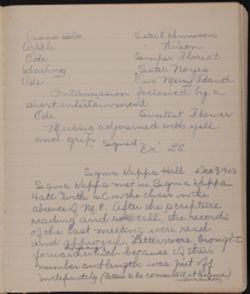 Piano Solo Sister E. Dennison
Article " Wilson
Ode Semper Floreat
Reading Sister Noyes
Ode Our Merry Band
Intermission followed by a
short entertainment
Ode Sweetest Flower
Meeting adjourned with yell
and grip. Signed
Ex' L.S.
Sigma Kappa Hall Dec 9, 1903
Sigma Kappa met in Sigma Kappa
Hall with in the chair in the
absence of M.C. After the scripture
reading and roll call, the records
of the last meeting were read
and approved. Letters were brought
forward which because of their
number and length was put off
indefinitely (letters to be consulted at leisure)